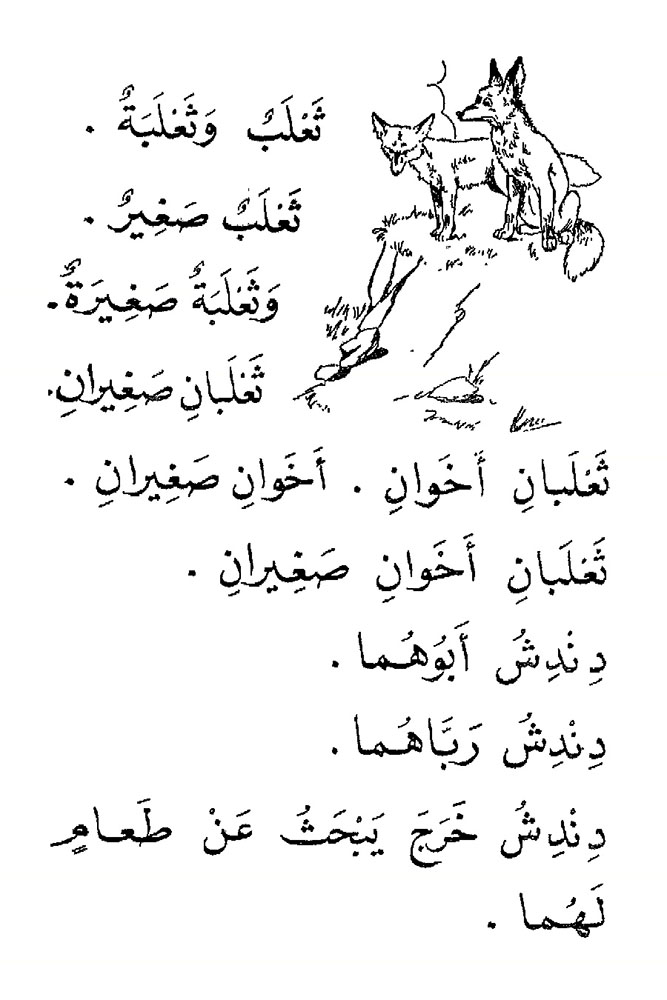 ثَعْلَبٌ وَثَعْلَبَةٌ .
ثَعْلَبٌ صَغِيرٌ .
وَثَعْلَبَةٌ صَغِيرَةٌ .
ثَعْلَبانِ صَغِيرانِ .
ثَعْلَبانِ أَخَوانِ . أَخَوانِ صَغِيرانِ .
ثَعْلَبانِ أَخَوانِ صَغِيرانِ .
دِنْدِشُ أَبُوهُما .
دِنْدِشُ رَبَّاهُما .
دِنْدِشُ خَرَجَ يَبْحَثُ عَنْ طَعامٍ
لَهُما .